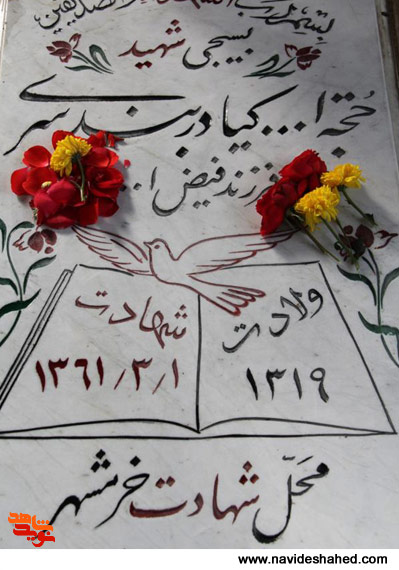 بسیجی شهید
حُجّة ا... کیا دربندسری
فرزند فیض ا...
ولادت
۱۳۱۹
شهادت
۱۳۶۱/۳/۱
محلّ شهادت خرمشهر
شاهد
نوید
www.navideshahed.com